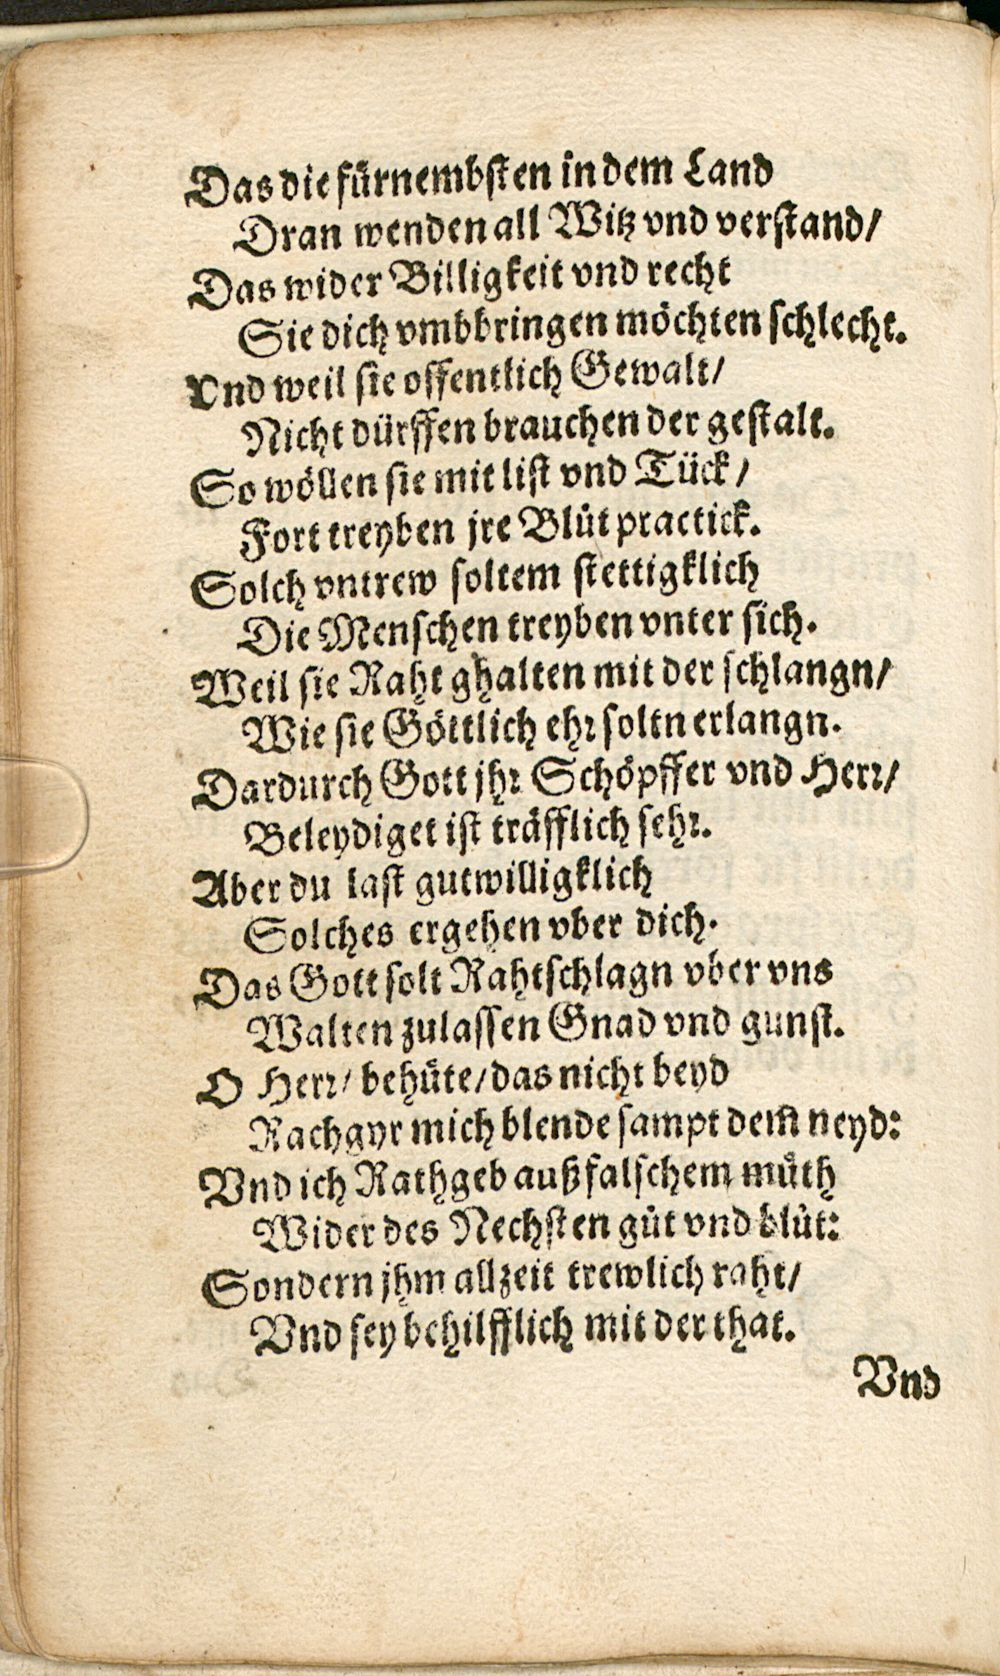 Das die fürnembsten in dem Land
Dran wenden all Witz vnd verstand/
Das wider Billigkeit vnd recht
Sie dich vmbbringen möchten schlecht.
Vnd weil sie offentlich Gewalt/
Nicht dürffen brauchen der gestalt.
So wöllen sie mit list vnd Tück/
Fort treyben jre Blůt practick.
Solch vntrew soltem stettigklich
Die Menschen treyben vnter sich.
Weil sie Raht ghalten mit der schlangn/
Wie sie Göttlich ehr soltn erlangn.
Dardurch Gott jhr Schöpffer vnd Herr/
Beleydiget ist träfflich sehr.
Aber du last gutwilligklich
Solches ergehen vber dich.
Das Gott solt Rahtschlagn vber vns
Walten zulassen Gnad vnd gunst.
O Herr/ behüte/ das nicht beyd
Rachgyr mich blende sampt dem neyd:
Vnd ich Rathgeb auß falschem můth
Wider des Nechsten gůt vnd blůt:
Sondern jhm allzeit trewlich raht/
Vnd sey behilfflich mit der that.
Vnd